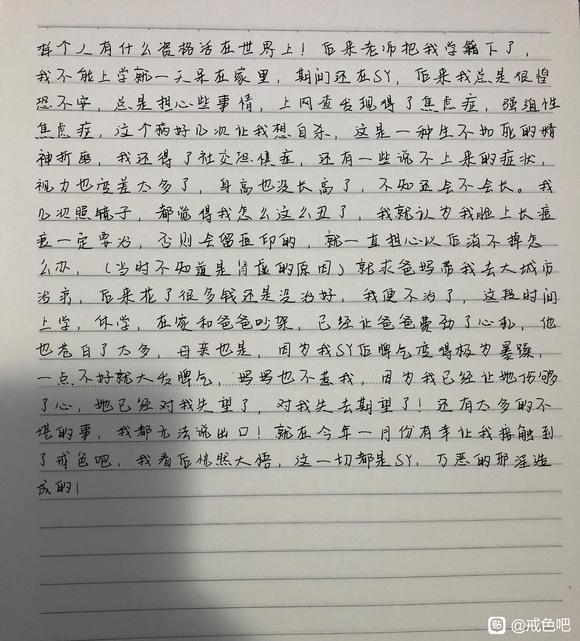 样个人有什么资格活在世界上！后来老师把我学籍下了，
我不能上学就一天呆在家里，期间还在SY，后来我总是很惶
恐不安，总是担心些事情，上网查发现得了焦虑症，强迫性
焦虑症，这个病好几次让我想自杀，这是一种生不如死的精
神折磨，我还得了社交恐惧症，还有一些说不上来的症状，
视力也变差太多了，身高也没长高了，不知还会不会长。我
几次照镜子，都觉得我怎么这么丑了，我就认为我脸上长痘
痘一定要治，否则会留豆印的，就一直担心以后消不掉怎
么办，（当时不知道是肾虚的原因）就求爸妈带我去大城市
治疗，后来花了很多钱还是没治好，我便不治了，这段时间
上学，休学，在家和爸爸吵架，已经让爸爸费劲了心机，他
也苍白了太多，母亲也是，因为我SY后脾气变得极为暴躁，
一点不好就大发脾气，妈妈也不惹我，因为我已经让她伤够
了心，她已经对我失望了，对我失去期望了！还有太多的不
堪的事，我都无法说出口！就在今年一月份有幸让我接触到
了戒色吧，我看后恍然大悟，这一切都是SY，万恶的邪淫造
成的！
贴 @戒色吧